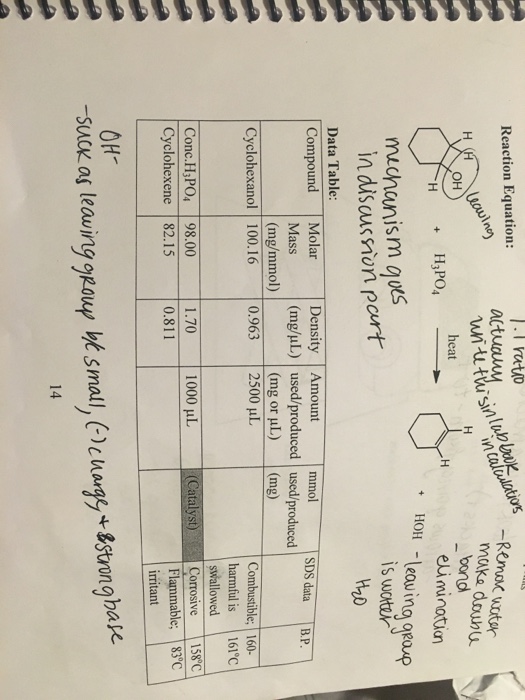 1:1 ratio
Reaction Equation:
actually
write this in lab book
in calculations
- Remove water
make double
bond
- elimination
leaving
H H OH H + H3PO4
heat
H H + HOH
- leaving group
is water
H2O
mechanism goes
in discussion part
Data Table:
Compound Molar Mass (mg/mmol) Density (mg/µL) Amount used/produced (mg or µL) mmol used/produced (mg) SDS data B.P.
Cyclohexanol 100.16 0.963 2500 µL Combustible; harmful is swallowed 160-161°C
Conc.H3PO4 98.00 1.70 1000 µL (Catalyst) Corrosive 158°C
Cyclohexene 82.15 0.811 Flammable; irritant 83°C
OH-
-suck as leaving group b/c small, (-) charge, + strong base
14